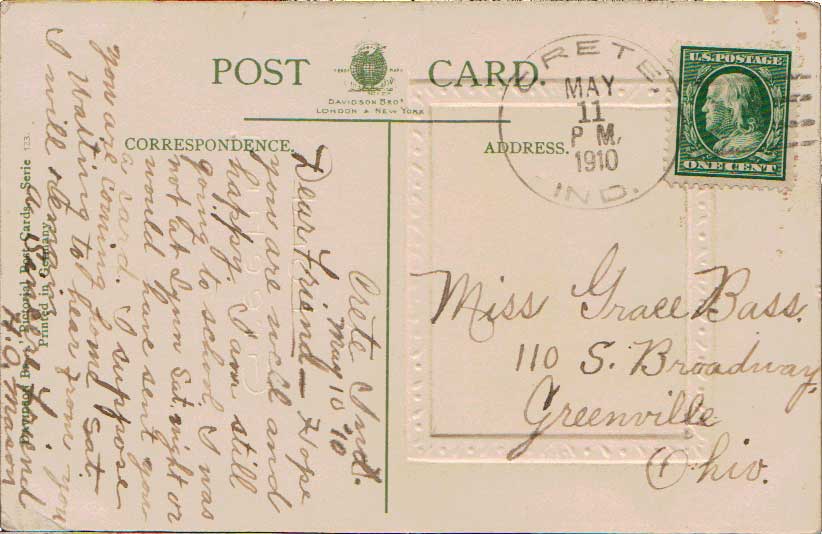 POST CARD.
DAVIDSON BROS
LONDON & NEW YORK
CORRESPONDENCE.
ADDRESS.
CRETE
MAY
11
P M.
1910
IND.
U.S. POSTAGE
ONE CENT
Crete Ind.
May 10 '10
Dear Friend— Hope
you are well and
happy. I am still
going to school. I was
not at Lynn Sat. night or
would have sent you
a card. I suppose
you are coming home Sat.
Waiting to hear from you
I will remain
Friend
H.O. Mason
Miss Grace Bass.
110 S. Broadway,
Greenville
Ohio.
Davidson Bros.' Pictorial Post Cards. Serie 123.
Printed in Germany.